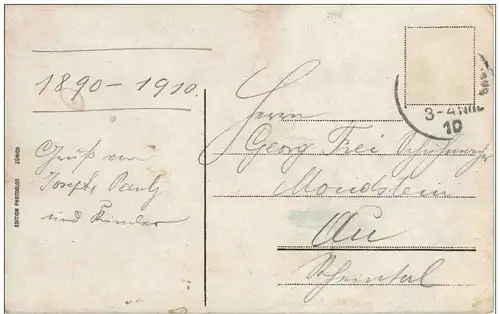 1890 – 1910.
Gruß von
Joseph, Pauly
und Kinder
EDITION PHOTOGLOB ZÜRICH
3-4 VIII
10
Herrn
Georg Frei
Mondstein
Au
Rheintal